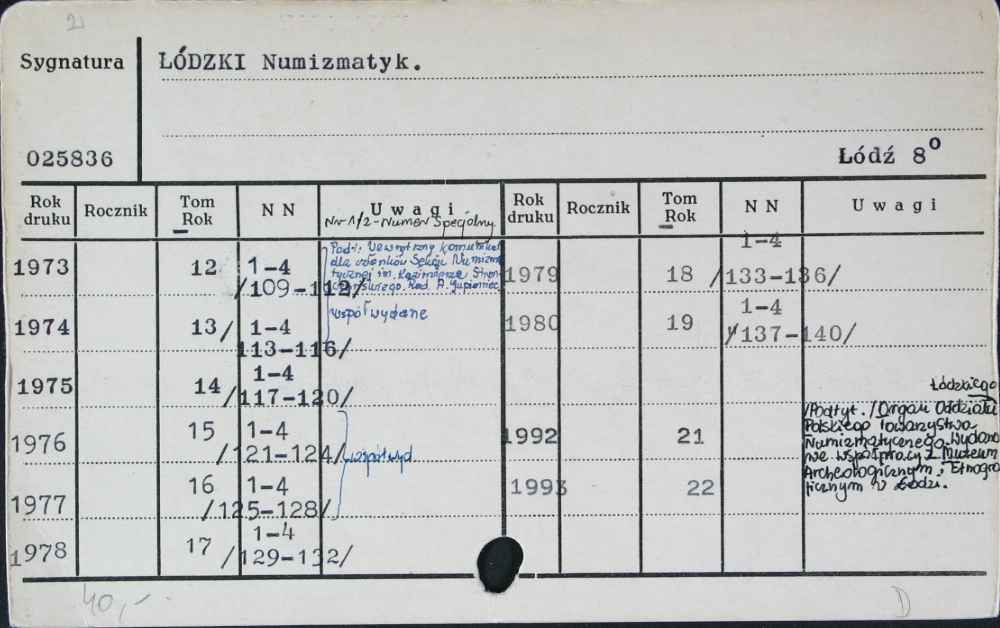 2
Sygnatura ŁÓDZKI Numizmatyk.
025836 Łódź 8°
Rok druku Rocznik Tom Rok N N Uwagi Rok druku Rocznik Tom Rok N N Uwagi
Nr 1/2 - Numer Specjalny
1973 12 1-4
/109-112/
Podt.: Wewnętrzny komunikat
dla członków Sekcji Numizma
tycznej im. Kazimierza Stron
czyńskiego. Red. A.
współwydane
1974 13 / 1-4
113-116/
1975 14 1-4
/117-120/
1976 15 1-4
/121-124/
współwyd
1977 16 1-4
/125-128/
1978 17 1-4
/129-132/
1979 18 1-4
/133-136/
1980 19 1-4
/137-140/
1992 21
Łódzkiego
/Podtyt./Organ Oddziału
Polskiego Towarzystwa
Numizmatycznego. Wydano
we współpracy z Muzeum
Archeologicznym i Etnogra
ficznym w Łodzi.
1993 22
40,- D